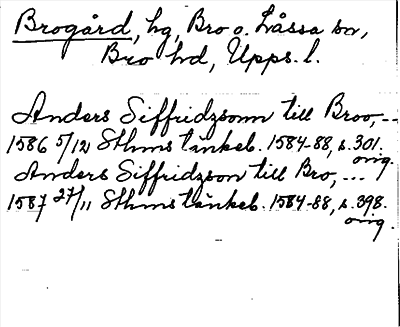 Brogård, hg, Bro o. Låssa sn,
Bro hd, Upps. l.
Anders Siffridzsonn till Broo,--
1586 5/12 Sthms tänkeb. 1584-88, s. 301.
orig.
Anders Siffridzson till Bro, ...
1587 27/11 Sthms tänkeb. 1584-88, s. 398.
orig.